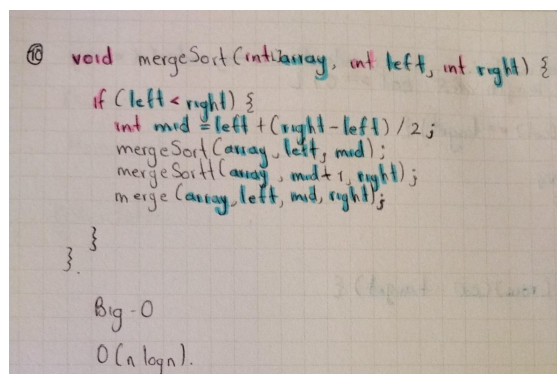 10 void mergeSort(int[] array, int left, int right) {
if (left < right) {
int mid = left + (right - left) / 2;
mergeSort(array, left, mid);
mergeSort(array, mid + 1, right);
merge(array, left, mid, right);
}
}.
Big-O
O(n log n).